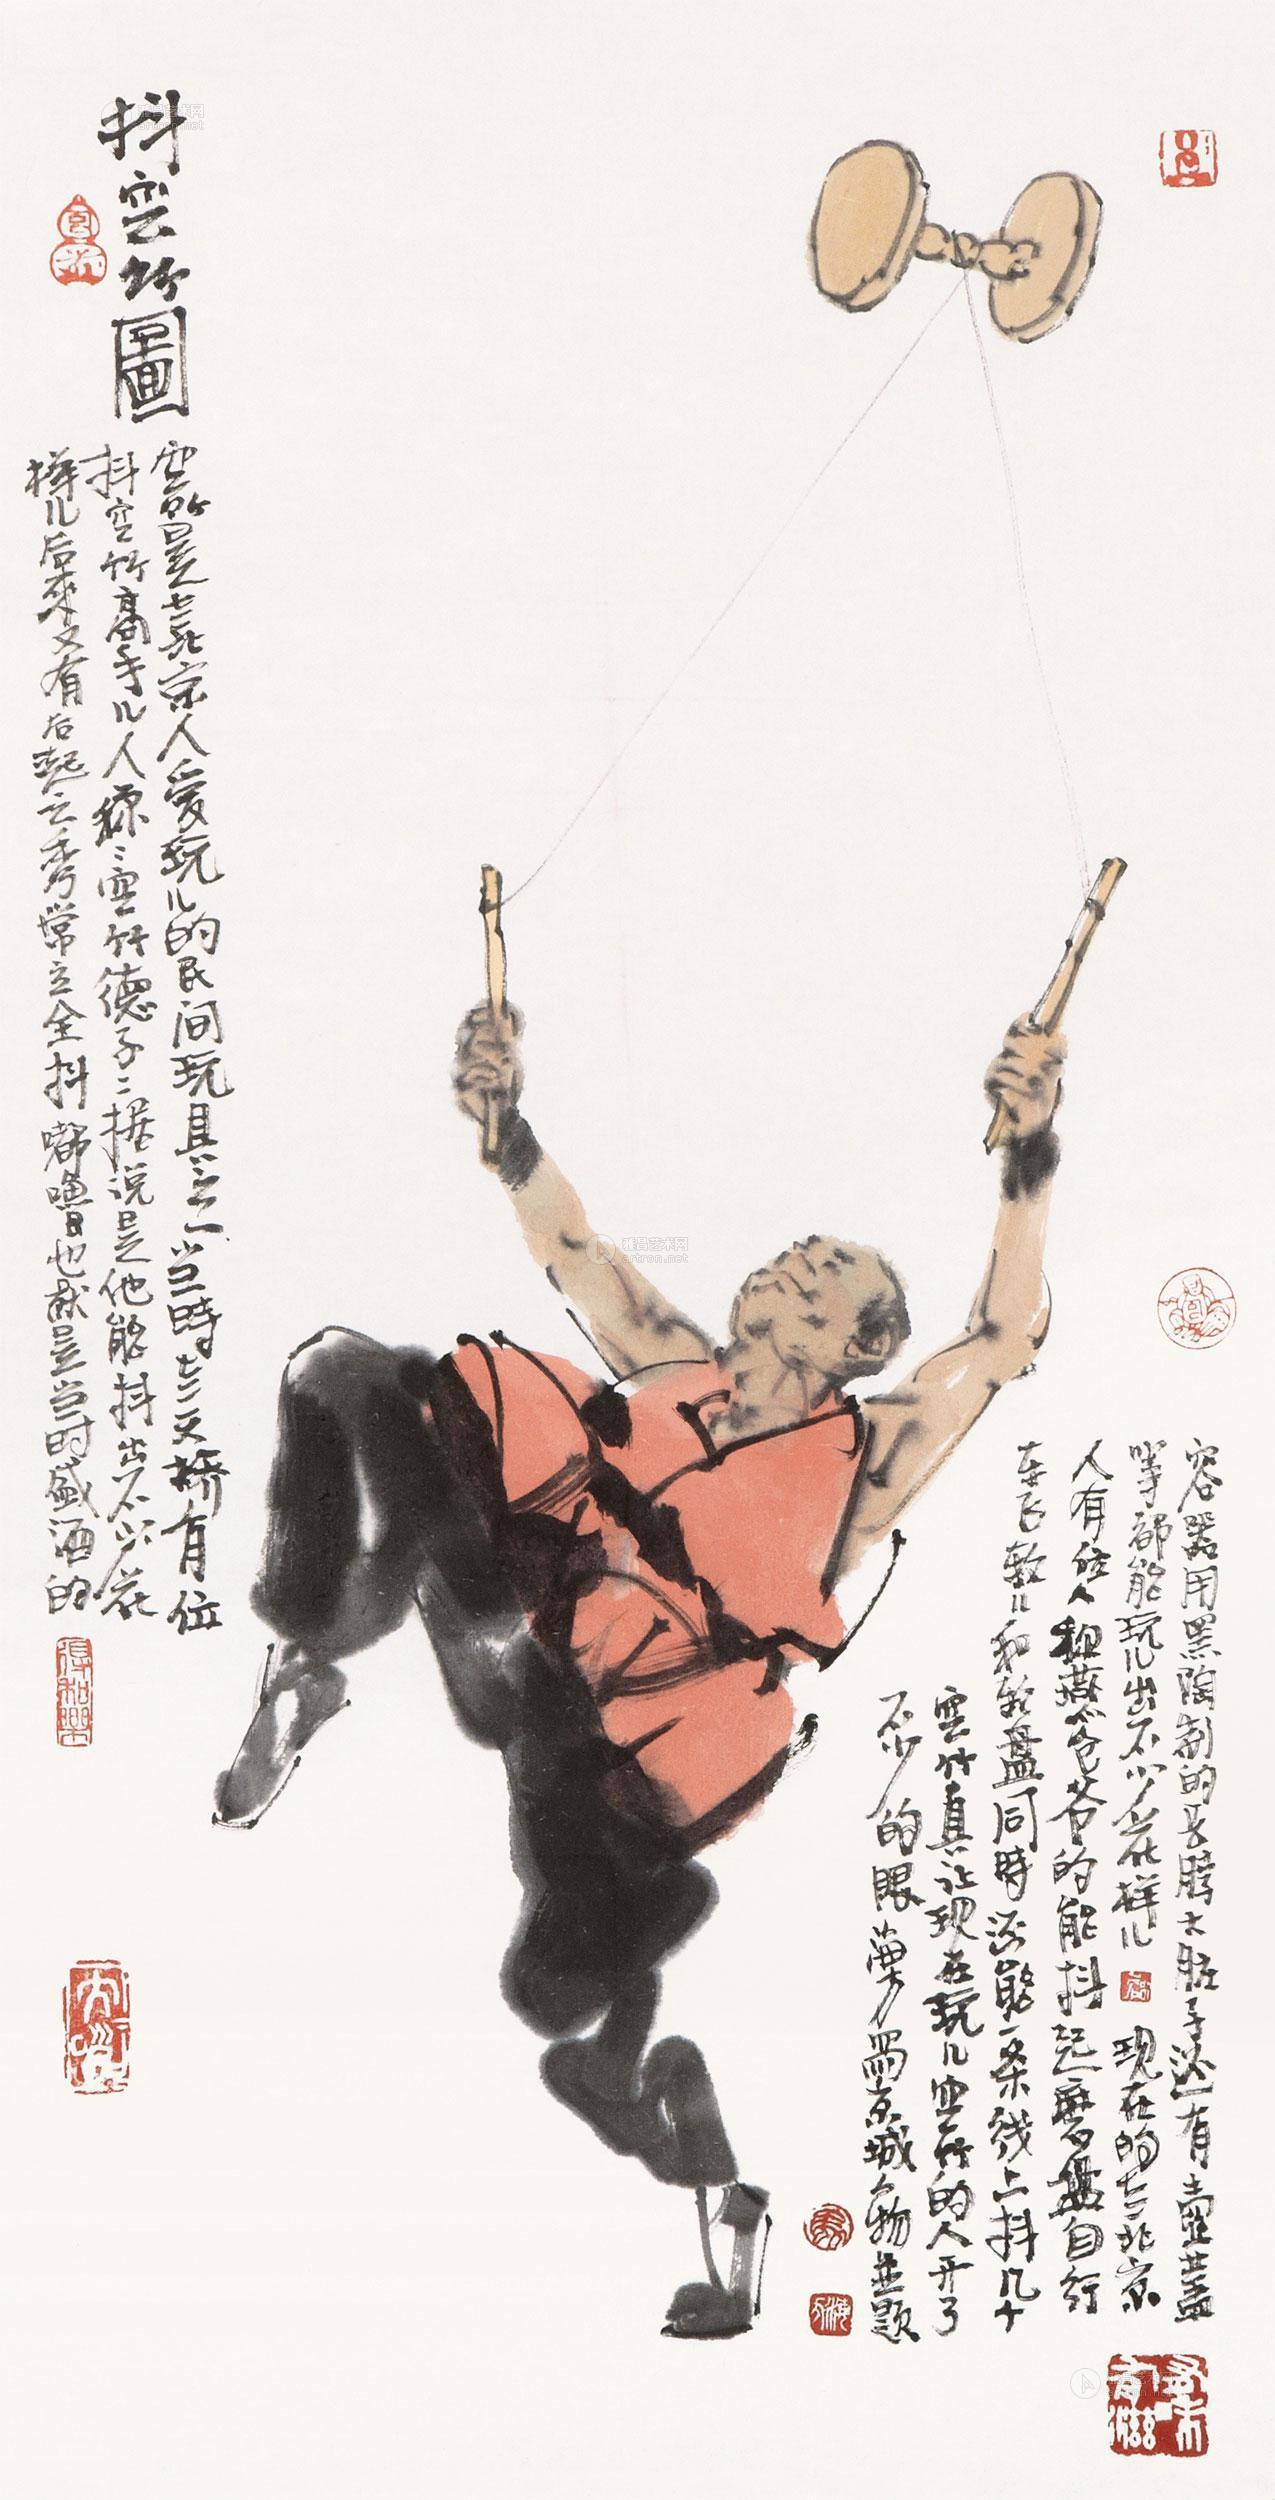 抖空竹图
空竹是老北京人爱玩儿的民间玩具之一当時老天桥有位
抖空竹高手儿人称空竹德子据说是他能抖出不少花
样儿后来又有后起之秀常立全抖嘟噜也就是当时盛酒的
容器用黑陶制的長脖大肚子還有壶盖
等都能玩儿出不少花样儿 现在的老北京
人有位人称爷爷的能抖起磨盘自行
车飞轮儿和轮盘同時还能一条线上抖几十
空竹真让现在玩儿空竹的人开了
不少的眼 京城人物並题
雅昌艺术网
artron.net